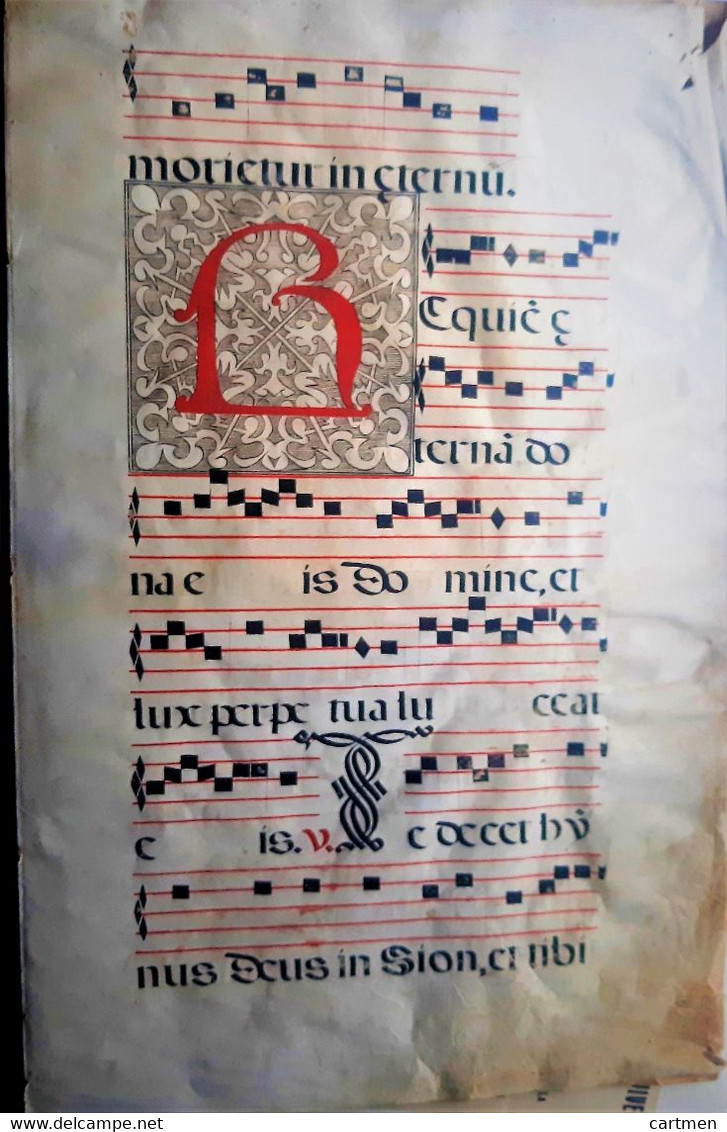 morietur in ęternū.
R
Equiē ę
ternā do
na e is Do mine, et
lux perpe tua lu ceat
e is. v. Te decet hỹ
nus Deus in Sion, et tibi
©www.delcampe.net cartmen